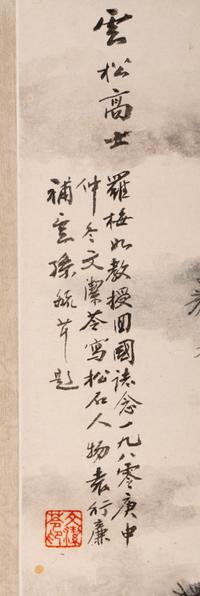 雲松高士
羅梅如教授回國誌念一九八零庚申
仲冬文潔苓寫松石人物袁行廉
補雲孫毓芹題